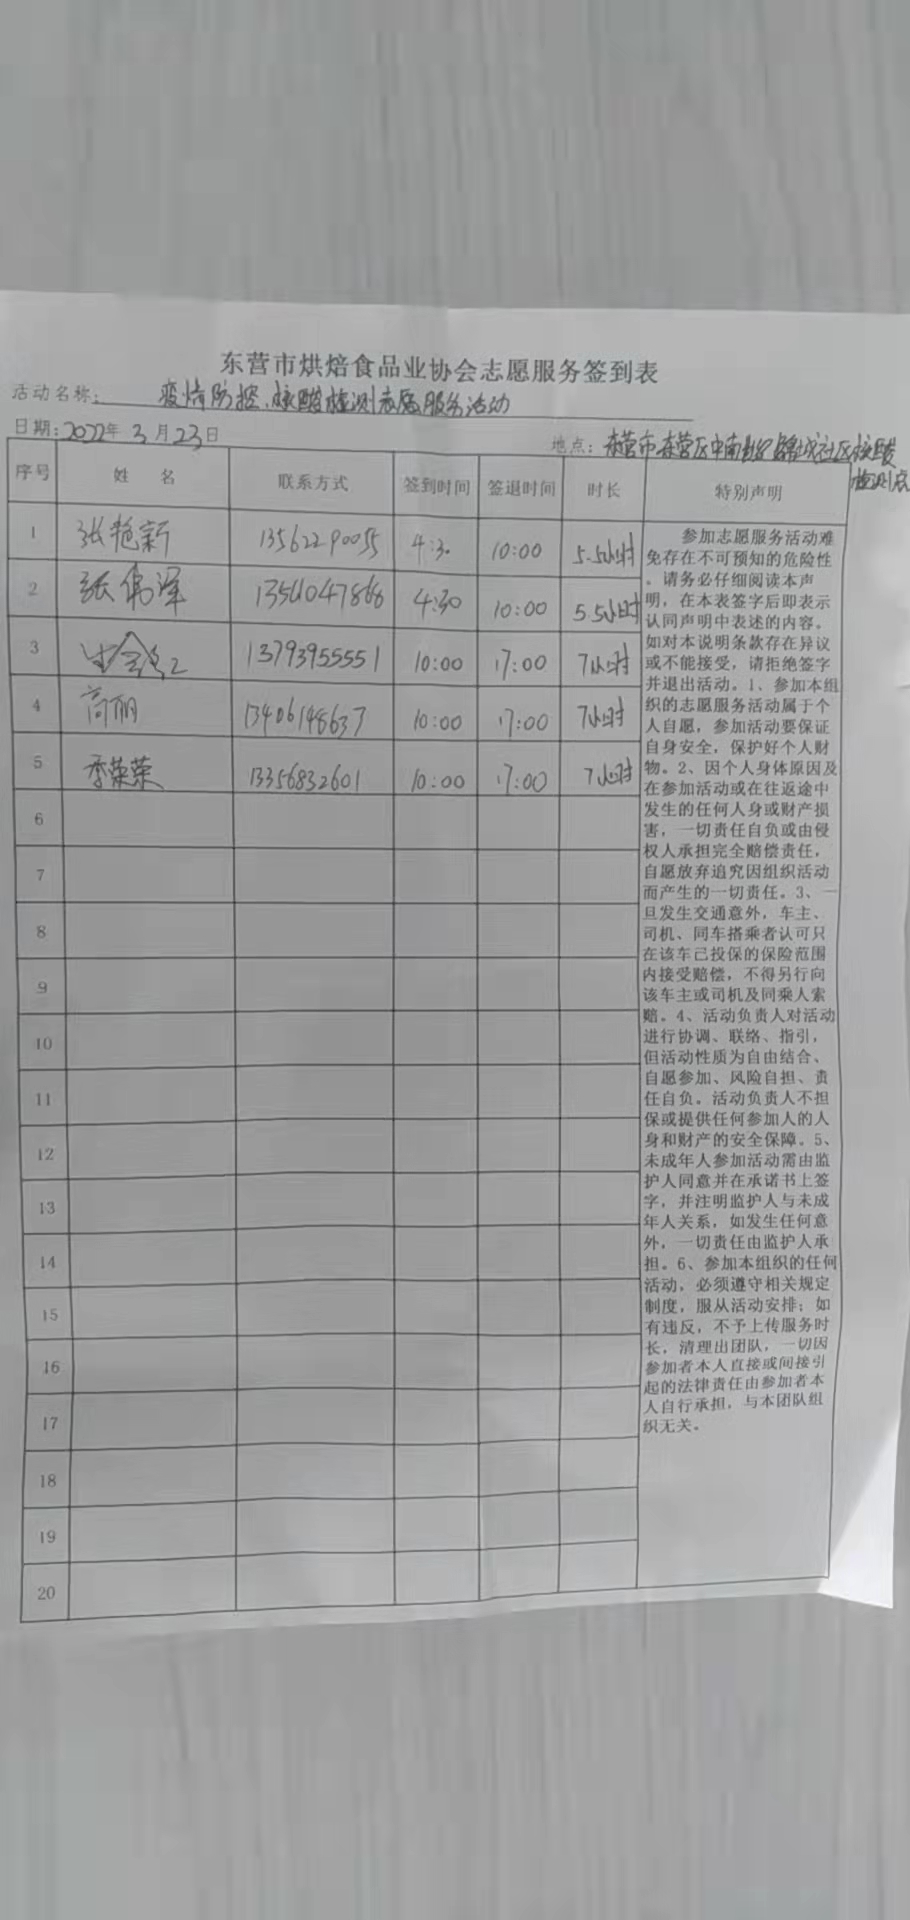 东营市烘焙食品业协会志愿服务签到表
活动名称：疫情防控、核酸检测志愿服务活动
日期：2022年3月23日
地点：东营市东营区中南世纪锦城社区核酸
检测点
序号 姓 名 联系方式 签到时间 签退时间 时长 特别声明
1 张艳新 13562290055 4:30 10:00 5.5小时
2 张伟泽 13561047868 4:30 10:00 5.5小时
3 13793955551 10:00 17:00 7小时
4 高丽 13406148637 10:00 17:00 7小时
5 季荣荣 13356832601 10:00 17:00 7小时
6
7
8
9
10
11
12
13
14
15
16
17
18
19
20
参加志愿服务活动难
免存在不可预知的危险性
。请务必仔细阅读本声
明，在本表签字后即表示
认同声明中表述的内容。
如对本说明条款存在异议
或不能接受，请拒绝签字
并退出活动。1、参加本组
织的志愿服务活动属于个
人自愿，参加活动要保证
自身安全，保护好个人财
物。2、因个人身体原因及
在参加活动或在往返途中
发生的任何人身或财产损
害，一切责任自负或由侵
权人承担完全赔偿责任，
自愿放弃追究因组织活动
而产生的一切责任。3、一
旦发生交通意外，车主、
司机、同车搭乘者认可只
在该车己投保的保险范围
内接受赔偿，不得另行向
该车主或司机及同乘人索
赔。4、活动负责人对活动
进行协调、联络、指引，
但活动性质为自由结合、
自愿参加、风险自担、责
任自负。活动负责人不担
保或提供任何参加人的人
身和财产的安全保障。5、
未成年人参加活动需由监
护人同意并在承诺书上签
字，并注明监护人与未成
年人关系，如发生任何意
外，一切责任由监护人承
担。6、参加本组织的任何
活动，必须遵守相关规定
制度，服从活动安排；如
有违反，不予上传服务时
长，清理出团队，一切因
参加者本人直接或间接引
起的法律责任由参加者本
人自行承担，与本团队组
织无关。